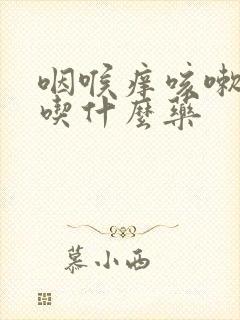 咽喉痒咳嗽
喫什麼藥
慕小西